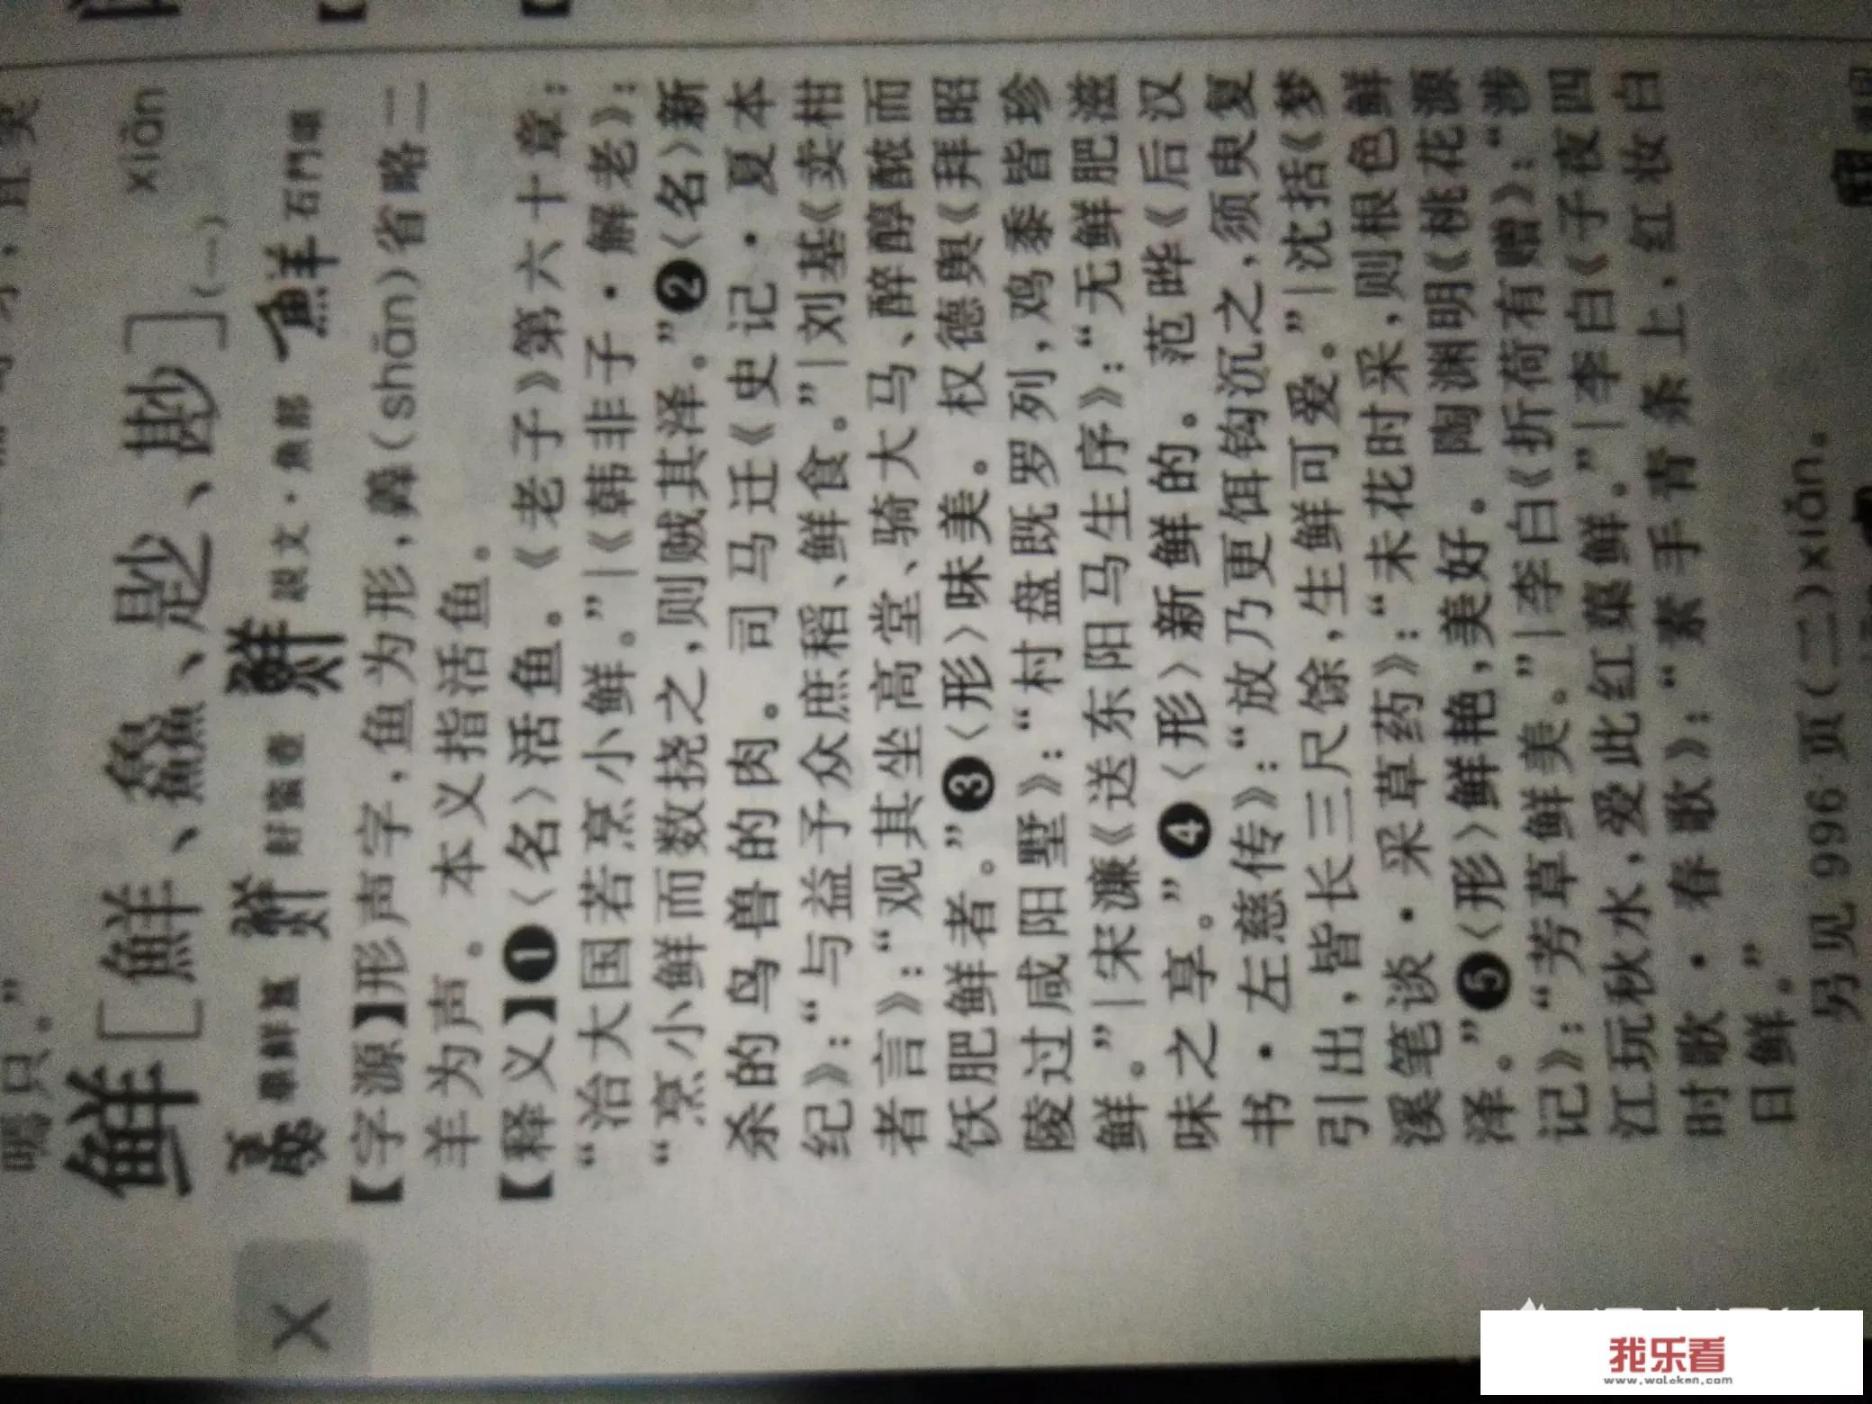 鲜[鮮、鱻、尟、尠](一) xiān
畢鮮簋 好蚉壺 説文·魚部 石門頌
【字源】形声字，鱼为形，羴(shān)省略二
羊为声。本义指活鱼。
【释义】❶〈名〉活鱼。《老子》第六十章：
“治大国若烹小鲜。”|《韩非子·解老》：
“烹小鲜而数挠之，则贼其泽。”❷〈名〉新
杀的鸟兽的肉。司马迁《史记·夏本
纪》：“与益予众庶稻、鲜食。”|刘基《卖柑
者言》：“观其坐高堂、骑大马、醉醇醲而
饫肥鲜者。”❸〈形〉味美。权德舆《拜昭
陵过咸阳墅》：“村盘既罗列，鸡黍皆珍
鲜。”|宋濂《送东阳马生序》：“无鲜肥滋
味之享。”❹〈形〉新鲜的。范晔《后汉
书·左慈传》：“放乃更饵钩沉之，须臾复
引出，皆长三尺馀，生鲜可爱。”|沈括《梦
溪笔谈·采草药》：“未花时采，则根色鲜
泽。”❺〈形〉鲜艳，美好。陶渊明《桃花源
记》：“芳草鲜美。”|李白《折荷有赠》：“涉
江玩秋水，爱此红蕖鲜。”|李白《子夜四
时歌·春歌》：“素手青条上，红妆白
日鲜。”
另见996页(二)xiǎn。
X
我乐看
www.woleken.com